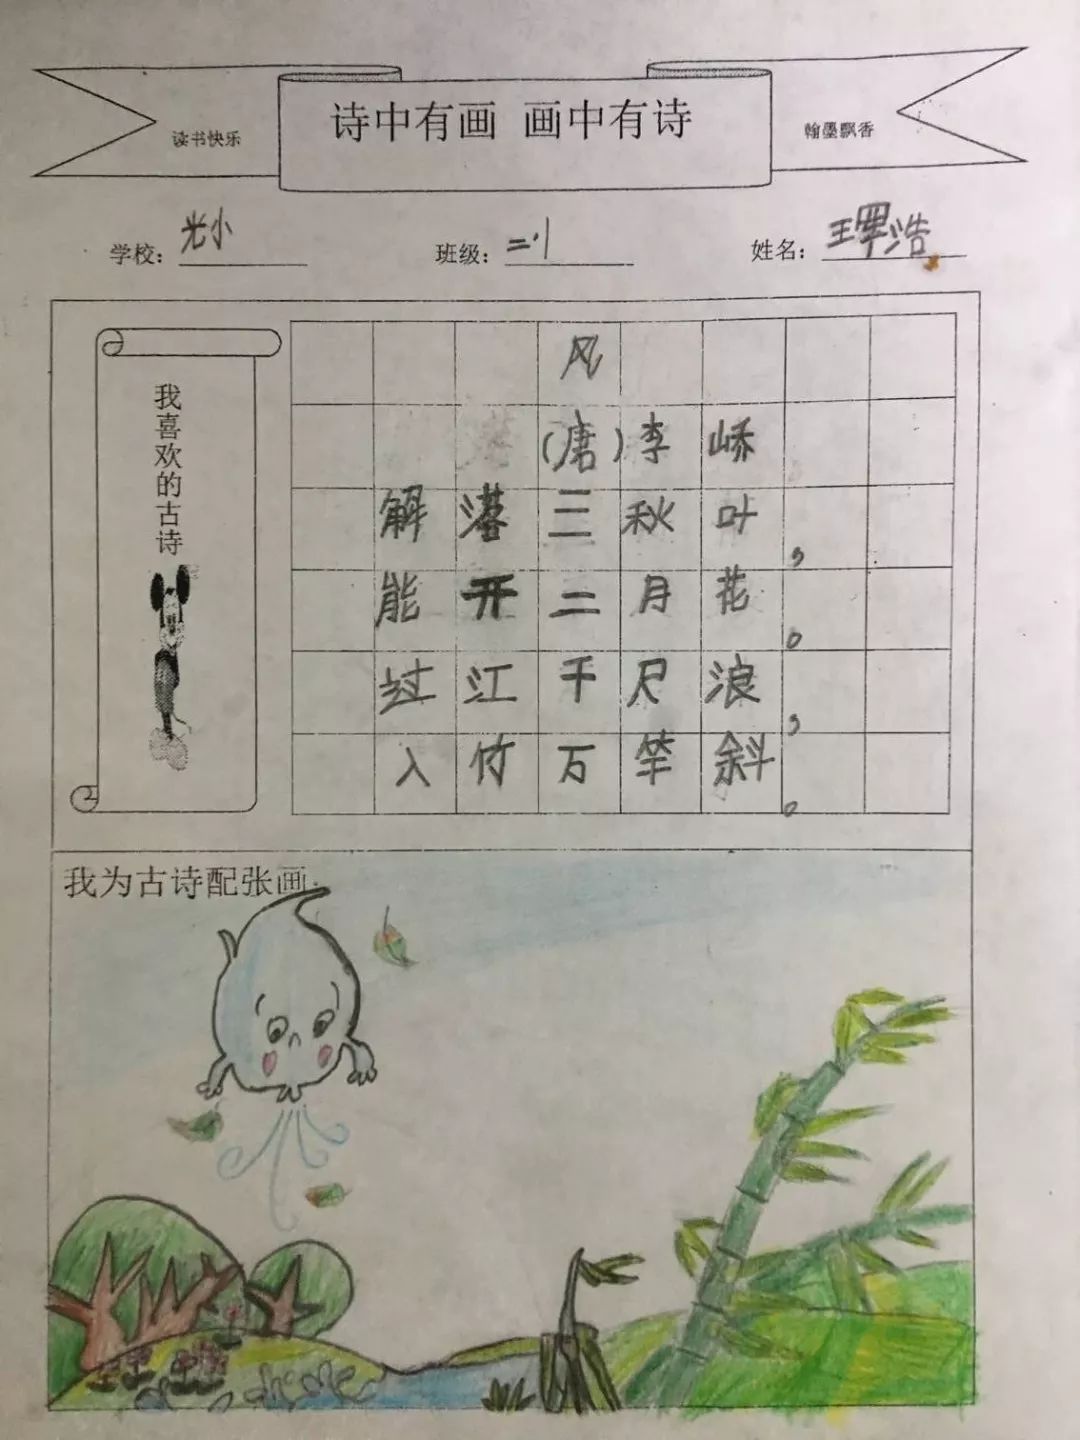 诗中有画 画中有诗
读书快乐
翰墨飘香
学校：光小
班级：二.1
姓名：王 浩
我喜欢的古诗
风
(唐)李峤
解落三秋叶，
能开二月花。
过江千尺浪，
入竹万竿斜。
我为古诗配张画：